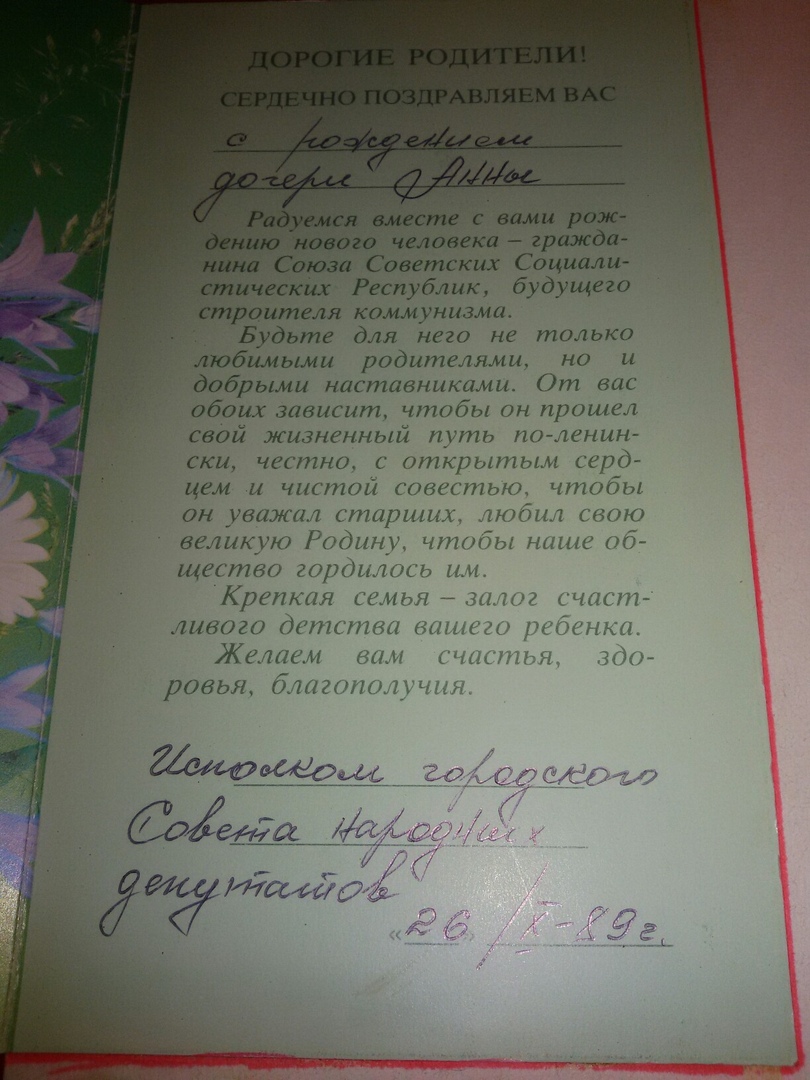 ДОРОГИЕ РОДИТЕЛИ!
СЕРДЕЧНО ПОЗДРАВЛЯЕМ ВАС
с рождением
дочери Анны
Радуемся вместе с вами рож-
дению нового человека – гражда-
нина Союза Советских Социали-
стических Республик, будущего
строителя коммунизма.
Будьте для него не только
любимыми родителями, но и
добрыми наставниками. От вас
обоих зависит, чтобы он прошел
свой жизненный путь по-ленин-
ски, честно, с открытым серд-
цем и чистой совестью, чтобы
он уважал старших, любил свою
великую Родину, чтобы наше об-
щество гордилось им.
Крепкая семья – залог счаст-
ливого детства вашего ребенка.
Желаем вам счастья, здо-
ровья, благополучия.
Исполком городского
Совета народных
депутатов
«26» /X-89г.